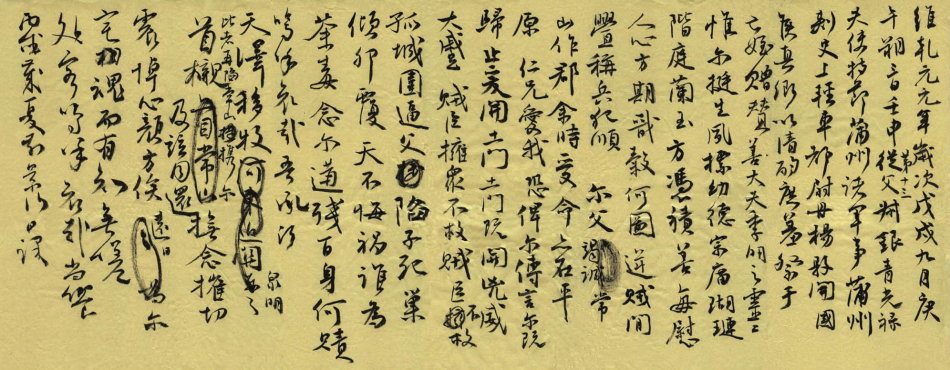 維乾元元年歲次戊戌九月庚
午朔三日壬申第十三從父叔銀青光祿
夫使持節蒲州諸軍事蒲州
刺史上輕車都尉丹楊縣開國
侯真卿以清酌庶羞祭于
亡姪贈贊善大夫季明之靈
惟爾挺生夙標幼德宗廟瑚璉
階庭蘭玉方憑積善每慰
人心方期戩穀何圖逆賊間
釁稱兵犯順 爾父竭誠常
山作郡余時受命在平
原 仁兄愛我恐俾爾傳言爾既
歸止爰開土門土門既開兇威
大蹙賊臣擁眾不救賊臣不救
孤城圍逼父陷子死巢
傾卵覆天不悔禍誰為
荼毒念爾遘殘百身何贖
嗚呼哀哉吾承
天澤移牧河關泉明
比者再陷常山攜爾
首櫬及茲同還撫念摧切
震悼心顏方俟遠日為爾
宅相魂而有知無嗟
久客嗚呼哀哉尚饗